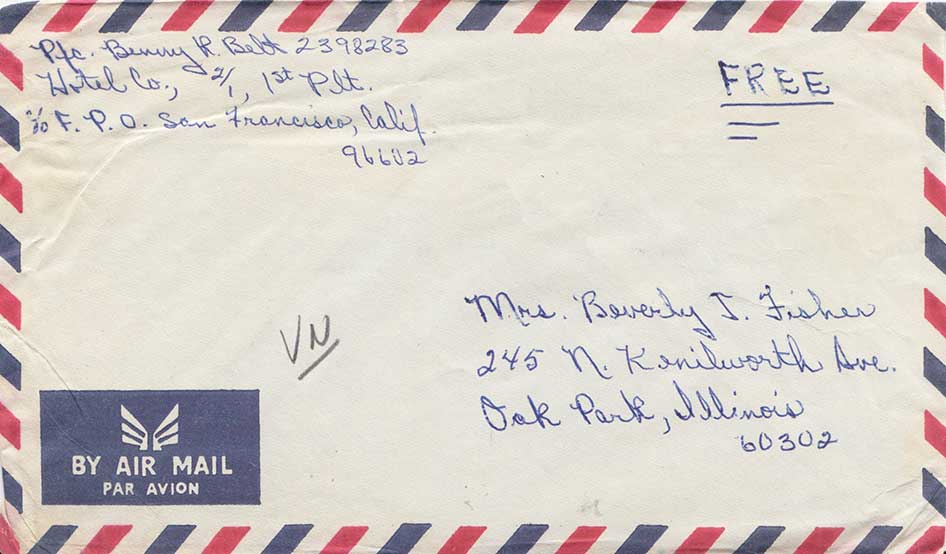 Pfc. Benny R. Bebb 2398283
Hotel Co., 2/1, 1st Plt.
c/o F. P. O. San Francisco, Calif.
96602
FREE
Mrs. Beverly J. Fisher
245 N. Kenilworth Ave.
Oak Park, Illinois
60302
VN
BY AIR MAIL
PAR AVION